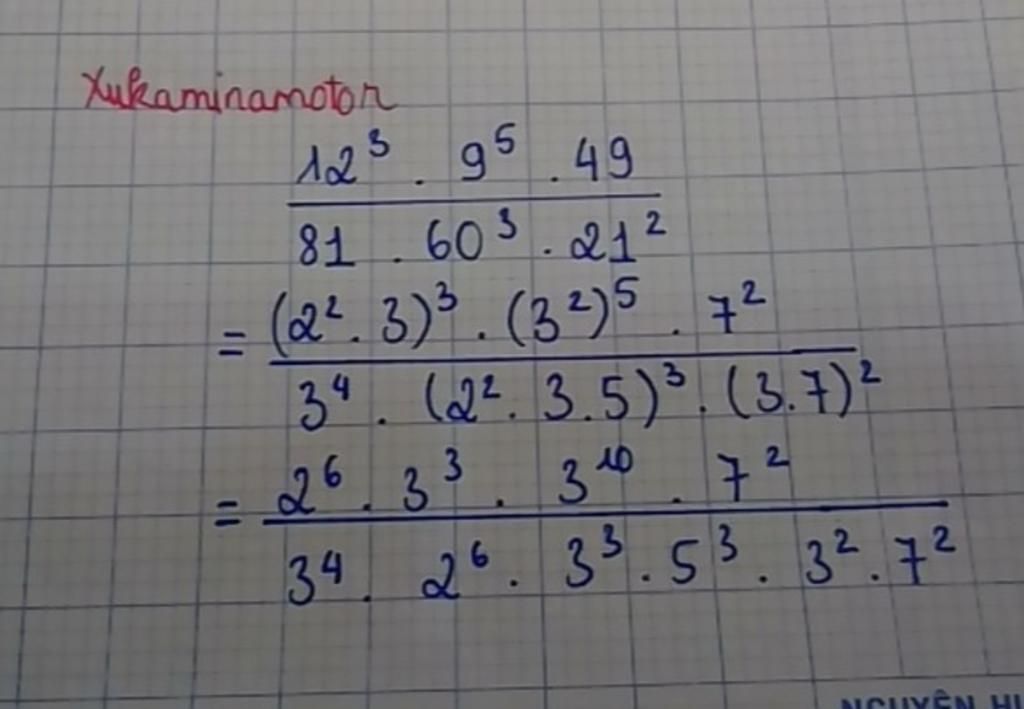 Xukaminamoton
12³ . 9⁵ . 49
81 . 60³ . 21²
= (2² . 3)³ . (3²)⁵ . 7²
3⁴ . (2² . 3 . 5)³ . (3 . 7)²
= 2⁶ . 3³ . 3¹⁰ . 7²
3⁴ . 2⁶ . 3³ . 5³ . 3² . 7²
NGUYỄN